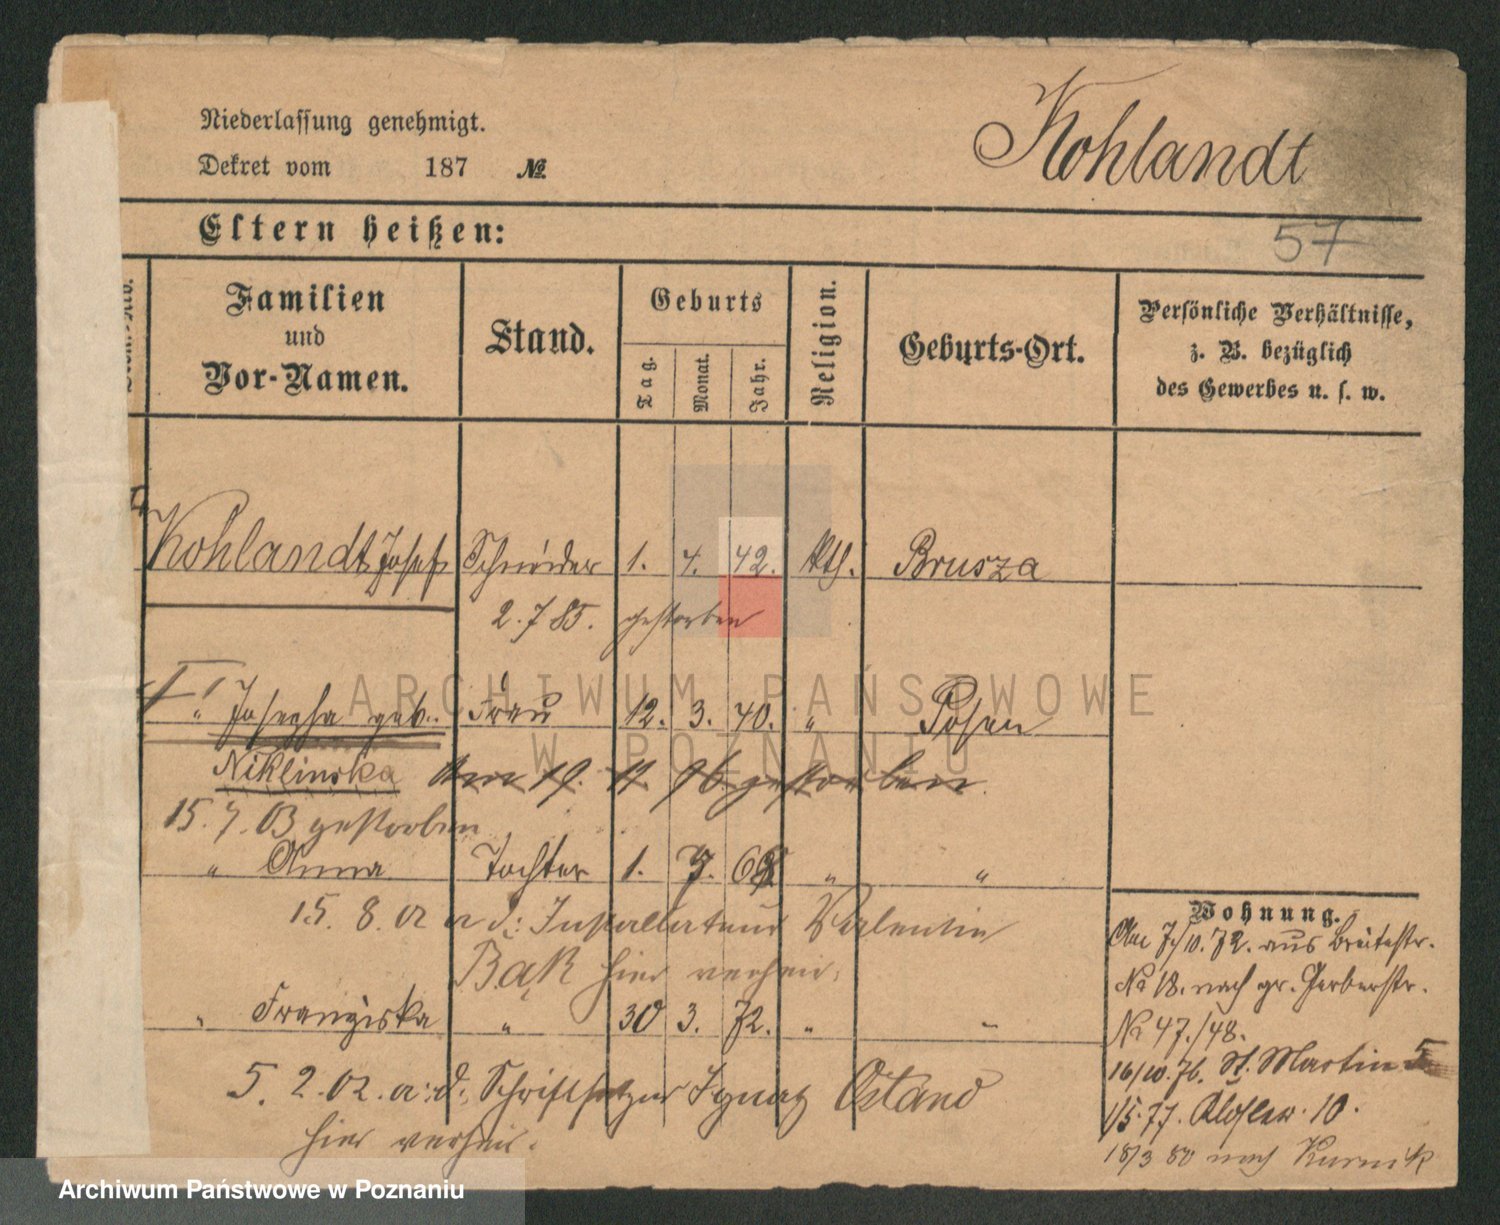 Niederlassung genehmigt.
Dekret vom 187 №
Kohlandt
57
Eltern heißen:
Familien
und
Vor-Namen.
Stand.
Geburts
Tag.
Monat.
Jahr.
Religion.
Geburts-Ort.
Persönliche Verhältnisse,
z. B. bezüglich
des Gewerbes u. s. w.
Kohlandt Josef Schneider 1. 4. 42. kth. Brusza
2.7 85. gestorben
" Josepha geb. Frau 12. 3. 40. " Posen
Niklinska am 19. 11 96 gestorben
15. 7. 03 gestorben
" Anna Tochter 1. 7. 68 " "
15. 8. 01 a. d. Installateur Valentin
Bąk hier verheir.
" Franziska " 30 3. 72. " "
5. 2. 02. a. d. Schriftsetzer Ignatz Ostand
hier verheir.
Wohnung.
Am 7/10. 72. aus Breitestr.
No 18. nach gr. Gerberstr.
No 47./48.
16/10. 76. St. Martin 5
1/5. 77. Kloster. 10.
18/3 80 nach Kurnik
ARCHIWUM PAŃSTWOWE
W POZNANIU
Archiwum Państwowe w Poznaniu